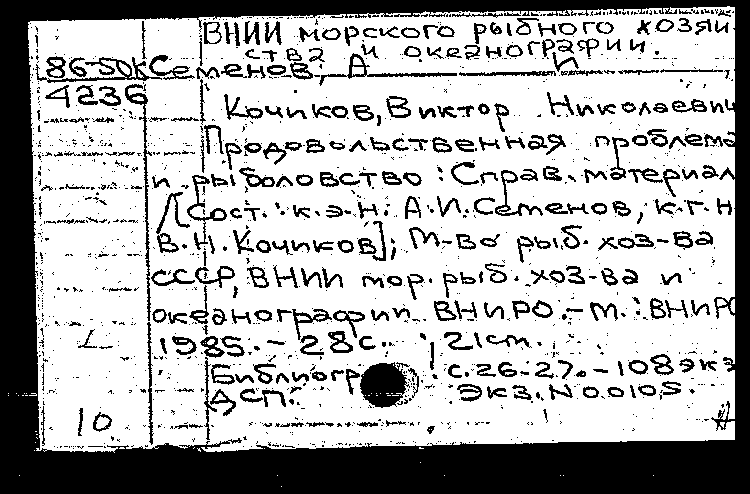 ВНИИ морского рыбного хозяй-
ства и океанографии.
86-50к Семенов, А И
4236
Кочиков, Виктор Николаевич
Продовольственная проблема
и рыболовство : Справ. материал
/[Сост.: к.э.н. А.И.Семенов, к.г.н
В.Н.Кочиков]; М-во рыб. хоз-ва
СССР, ВНИИ мор. рыб. хоз-ва и
океанографии ВНИРО. - М. : ВНИРО
1985. - 28 с. ; 21 см.
Библиогр : с. 26-27. - 108 экз
ДСП. Экз. N 00105.
10